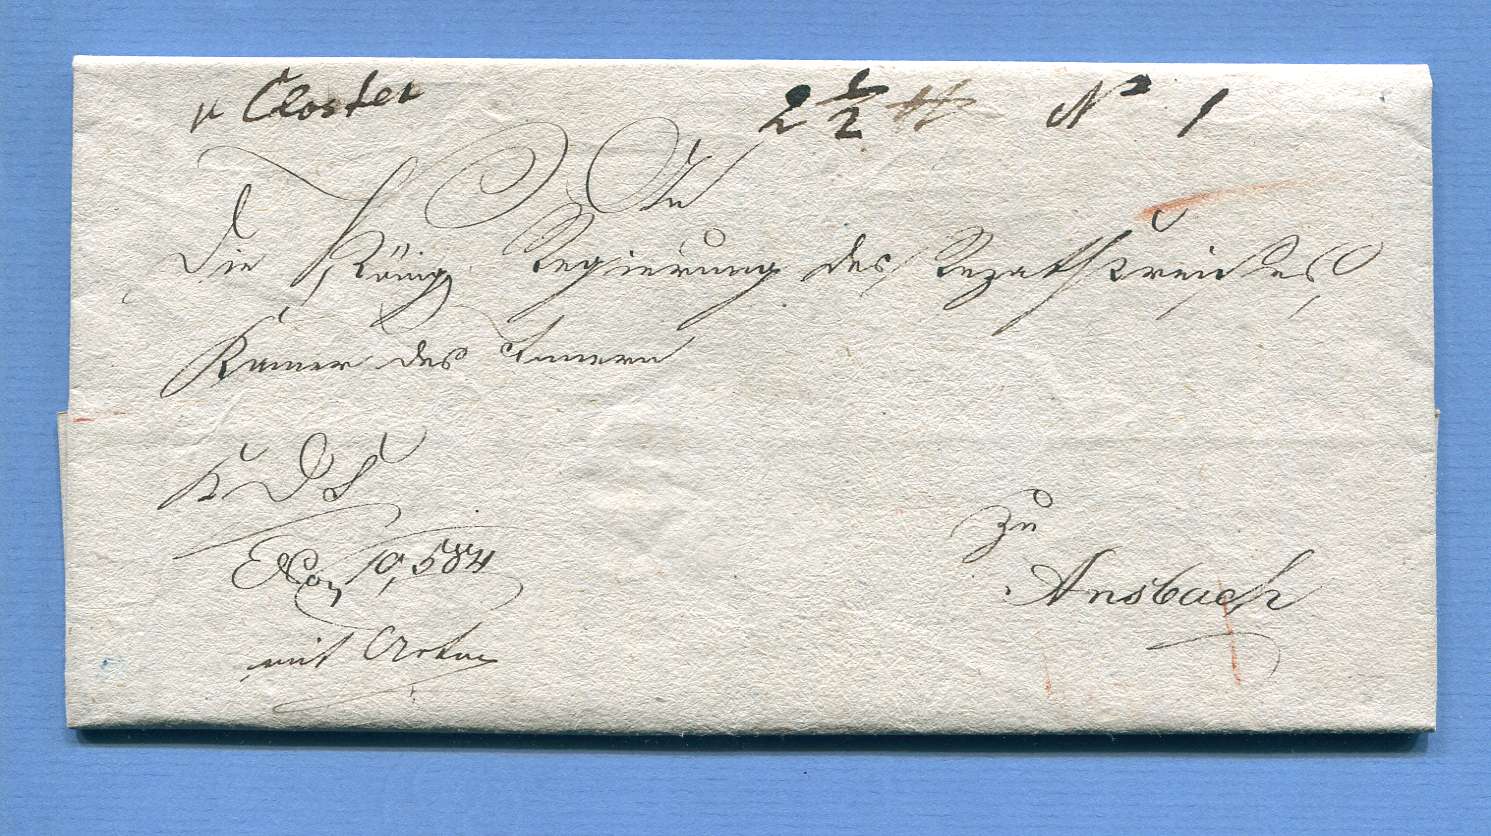 v Closter 2 1/2 ℔ No 1
An
Die Königl Regierung des Rezatkreises
Kamer des Innern
K D S
Exp. 10,584
mit Acten
zu
Ansbach